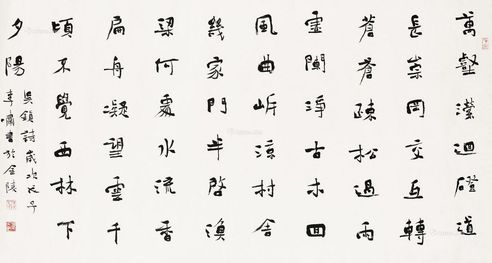 萬壑瀠迴磴道
長崇岡交互轉
蒼蒼疎松過雨
虛闌淨古木回
風曲岸涼村舍
幾家門半啓漁
梁何處水流香
扁舟凝望雲千
頃不覺西林下
夕陽
吳鎮詩歲次戊子
李嘯書於金陵